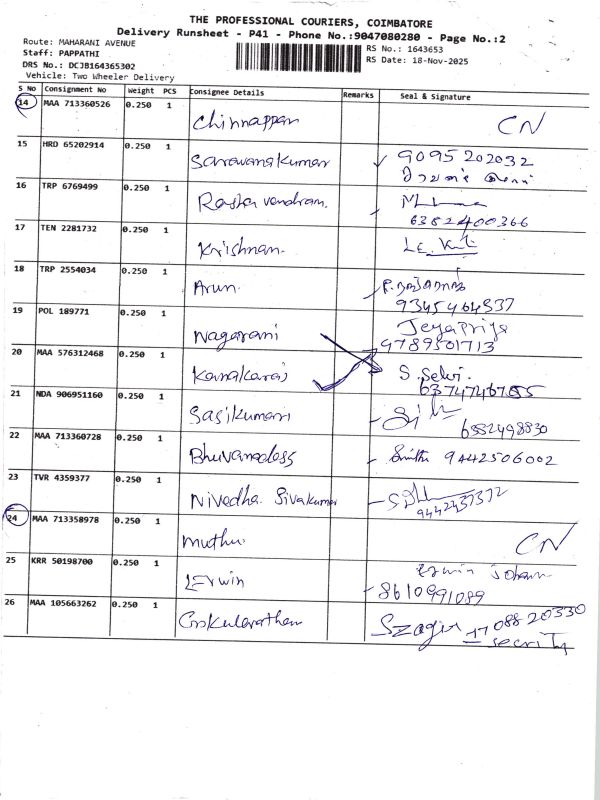 THE PROFESSIONAL COURIERS, COIMBATORE
Delivery Runsheet - P41 - Phone No.:9047080280 - Page No.:2
Route: MAHARANI AVENUE
Staff: PAPPATHI
DRS No.: DCJB164365302
Vehicle: Two Wheeler Delivery
RS No.: 1643653
RS Date: 18-Nov-2025
S No Consignment No Weight PCS Consignee Details Remarks Seal & Signature
14 MAA 713360526 0.250 1 Chinnappan CN
15 HRD 65202914 0.250 1 Saravanakumar 9095202032
16 TRP 6769499 0.250 1 6382400366
17 TEN 2281732 0.250 1 Krishnan.
18 TRP 2554034 0.250 1 Arun. 9345464537
19 POL 189771 0.250 1 Nagarani Jeyapriya
9789501713
20 MAA 576312468 0.250 1 Kanakaraj S. Selvi.
21 NDA 906951160 0.250 1 Sasikumar 6382498830
22 MAA 713360728 0.250 1 Bhuvanadoss 9442506002
23 TVR 4359377 0.250 1 Nivedha. Sivakumar 9442437372
24 MAA 713358978 0.250 1 Muthu. CN
25 KRR 50198700 0.250 1 Erwin
8610991089
26 MAA 105663262 0.250 1 Gokularatham